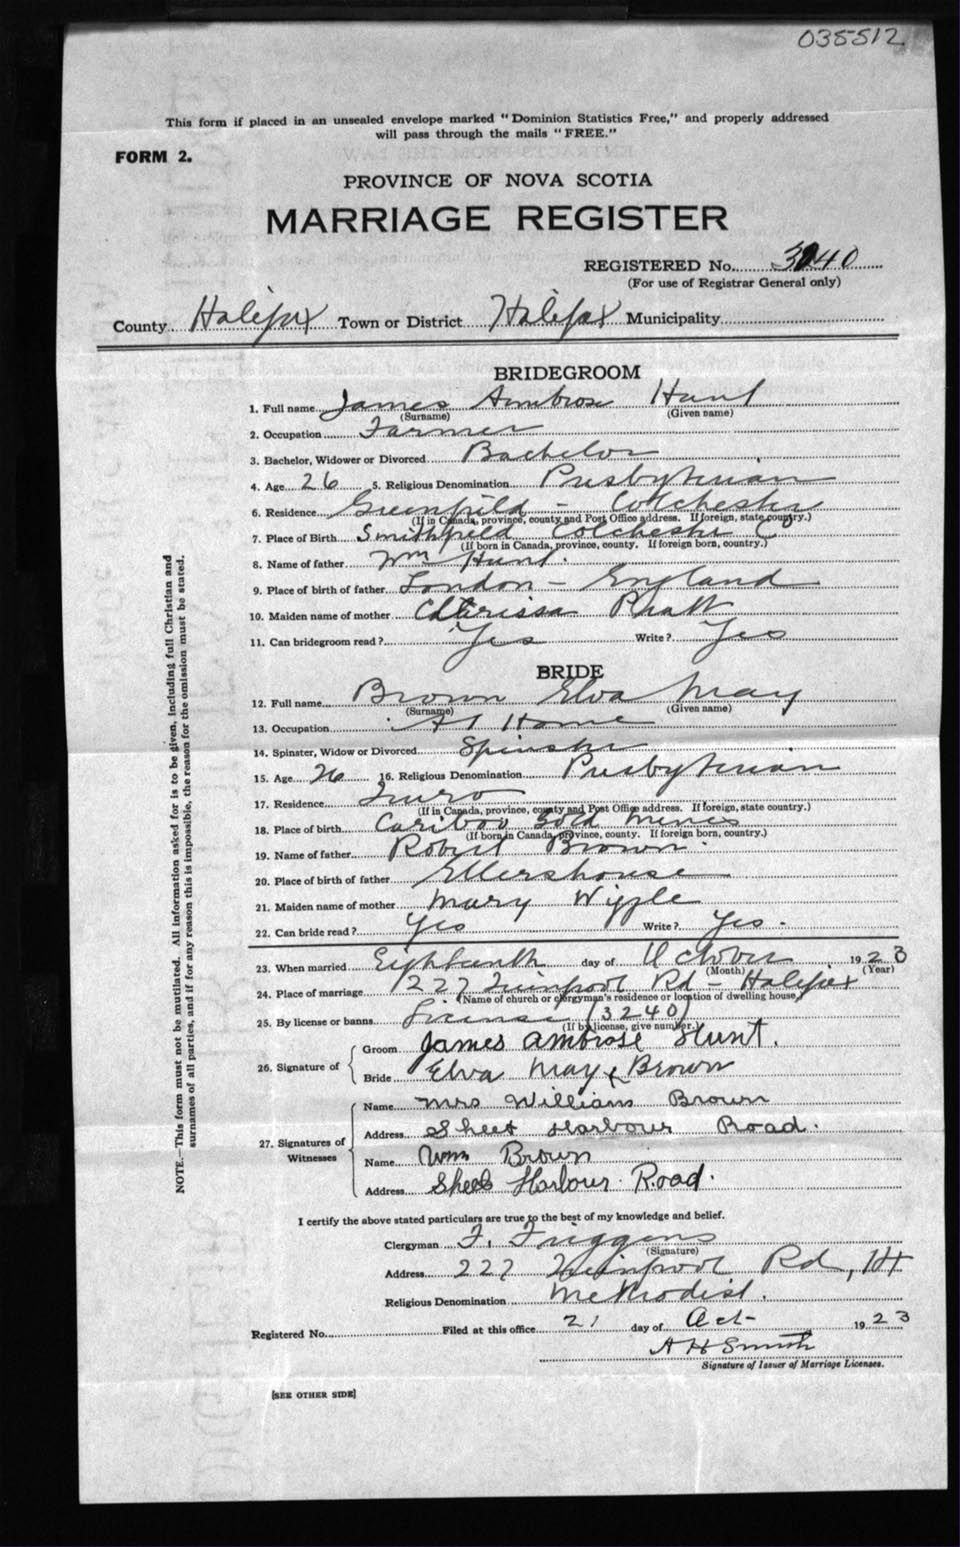 035512
This form if placed in an unsealed envelope marked "Dominion Statistics Free," and properly addressed
will pass through the mails "FREE."
FORM 2.
PROVINCE OF NOVA SCOTIA
MARRIAGE REGISTER
REGISTERED No. 3240
(For use of Registrar General only)
County Halifax Town or District Halifax Municipality
BRIDEGROOM
1. Full name James Ambrose Hunt
(Surname) (Given name)
2. Occupation Farmer
3. Bachelor, Widower or Divorced Bachelor
4. Age 26 5. Religious Denomination Presbyterian
6. Residence Greenfield - Colchester
(If in Canada, province, county and Post Office address. If foreign, state country.)
7. Place of Birth Smithfield Colchester C
(If born in Canada, province, county. If foreign born, country.)
8. Name of father Wm Hunt.
9. Place of birth of father London - England
10. Maiden name of mother Clarissa Pratt
11. Can bridegroom read? Yes Write? Yes
BRIDE
12. Full name Brown Elva May
(Surname) (Given name)
13. Occupation At Home
14. Spinster, Widow or Divorced Spinster
15. Age 26 16. Religious Denomination Presbyterian
17. Residence Truro
(If in Canada, province, county and Post Office address. If foreign, state country.)
18. Place of birth Caribou Gold Mines
(If born in Canada, province, county. If foreign born, country.)
19. Name of father Robert Brown.
20. Place of birth of father Ellershouse
21. Maiden name of mother Mary
22. Can bride read? Yes Write? Yes.
23. When married Eighteenth day of October 1923
(Month) (Year)
24. Place of marriage 227 Quinpool Rd - Halifax
(Name of church or clergyman's residence or location of dwelling house.)
25. By license or banns License (3240)
(If by license, give number.)
26. Signature of
Groom James Ambrose Hunt.
Bride Elva May Brown
27. Signatures of Witnesses
Name Mrs William Brown
Address Sheet Harbour Road.
Name Wm Brown
Address Sheet Harbour Road.
I certify the above stated particulars are true to the best of my knowledge and belief.
Clergyman F. Friggens
(Signature)
Address 227 Quinpool Rd, Hx
Religious Denomination Methodist.
Registered No. Filed at this office 21 day of Oct- 1923
A H Smith
Signature of Issuer of Marriage Licenses.
[SEE OTHER SIDE]
NOTE.—This form must not be mutilated. All information asked for is to be given, including full Christian and
surnames of all parties, and if for any reason this is impossible, the reason for the omission must be stated.